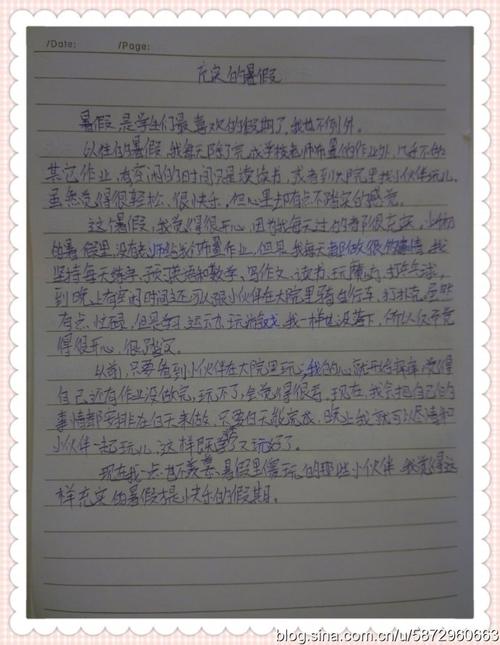 /Date: /Page:
充实的暑假
暑假是学生们最喜欢的假期了,我也不例外。
以往的暑假,我每天除了完成学校老师布置的作业外,几乎不做
其它作业,有空闲的时间只是读读书,或者到大院里找小伙伴玩儿,
虽然觉得很轻松、很快乐,但心里却有点不踏实的感觉。
这个暑假,我觉得很开心,因为我每天过的都很充实,
的暑假里,没有老师给我们布置作业,但是我每天都做很多事情,我
坚持每天练字、预习英语和数学、写作文、读书、玩魔方、打乒乓球,
到晚上有空闲时间还可以跟小伙伴在大院里骑自行车、打扑克,虽然
有点忙碌,但是学习、运动、玩游戏,我一样也没落下,所以仅
得很开心、很踏实。
以前,只要看到小伙伴在大院里玩,我的心就开始痒痒,觉得
自己还有作业没做完,玩不了,会觉得很丧,现在,我会把自己的
事情都安排在白天来做,只要白天能完成,晚上我就可以尽情和
小伙伴一起玩儿,这样既学了又玩好了。
现在我一点也不羡慕暑假里爱玩的那些小伙伴,我觉得这
样充实的暑假才是快乐的假期。
blog.sina.com.cn/u/5872960663